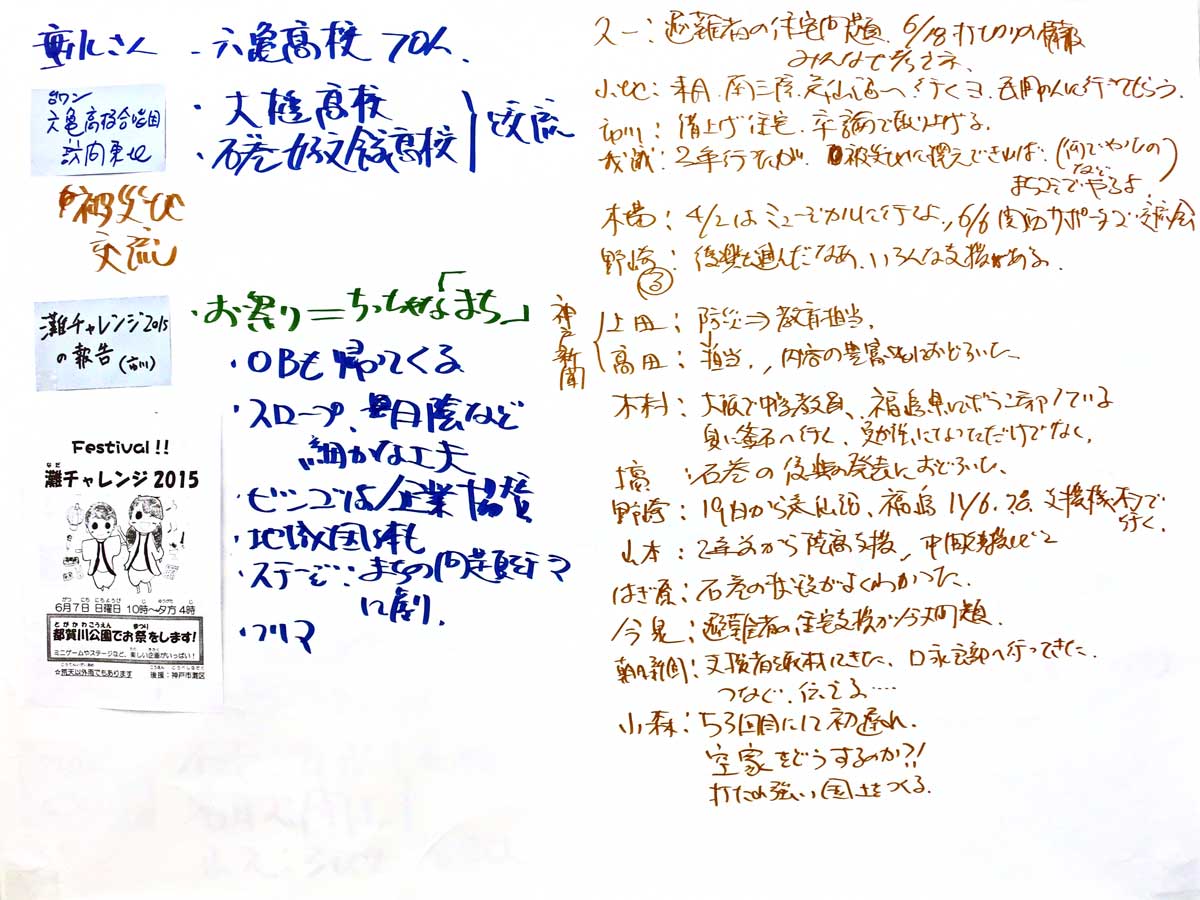 さん - 六亀高校 70人.
台ワン
六亀高校合唱団
訪問東北
・大槌高校
・石巻好文館高校
交流
被災地
交流
灘チャレンジ2015
の報告(市川)
・お祭り=ちっちゃな「まち」
・OBも帰ってくる
・スロープ、日陰など
細かな工夫
・ビンゴは企業協賛
・地域団体も
・ステージ:まちの問題をテーマ
に劇.
・フリマ
Festival!!
なだ
灘チャレンジ2015
がつ にち にちようび じ ゆうがた じ
6月7日 日曜日 10時〜夕方4時
とがかわこうえん まつり
都賀川公園でお祭をします!
ミニゲームやステージなど、楽しい企画がいっぱい!
☆荒天以外雨でもあります
後援:神戸市灘区
:避難者の住宅問題. 6/18打切りの情報
みんなで考えてネ.
小池:来月.南三陸.気仙沼へ行くヨ.民間の人に行ってもらう.
市川:借上げ住宅.卒論で取り上げる.
:2年行たが.被災地に震えできれば.(何でやるの
など)
まちでやるよ.
木場:4/2はミュージカルに行くよ,,6/6関西サポーターズ交流会
野崎:後輩も進んだなあ.いろんな支援がある.
る
神戸新聞
上田:防災⇒教育担当.
高田:担当.,内容の豊富さにおどろいた、
木村:大阪で中学教員、福島県に
夏に釜石へ行く、勉強になっただけでなく.
:石巻の復興の発表におどろいた、
野崎:19日から気仙沼、福島 11/6.
行く.
山本:2年前から
はぎ原:石巻の状況がよくわかった.
今見:避難者の住宅支援が今大問題.
朝日新聞:支援者取材にきた、口永良部へ行ってきた.
つなぐ.伝える…
小森:53回目にして初遅れ.
空家をどうするのか?!
打たれ強い国土をつくる.